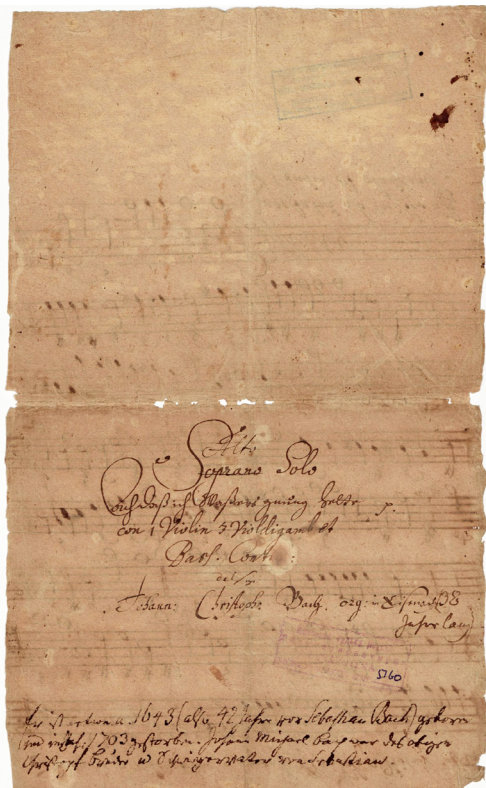 Alto
Soprano Solo
Ach daß ich Waßers gnung hette p.
con 1 Violin 3 Violdigamb et
Bass. Cont:
del Sr.
Johann: Christoph: Bach. org: in Eisenach 38
Jahr lang
Er ist etwa a. 1643 (also 42 Jahre vor Sebastian Bach) geboren
und 1703 gestorben. Johann Michael Bach war des obigen
Christoph Bruder u Schwiegervater von Sebastian.
5760